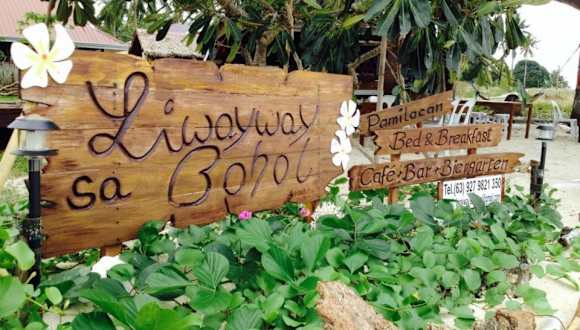 Liwayway
sa Bohol
Pamilacan
Bed & Breakfast
Cafe • Bar • Biergarten
Tel.(63) 927 9821 350